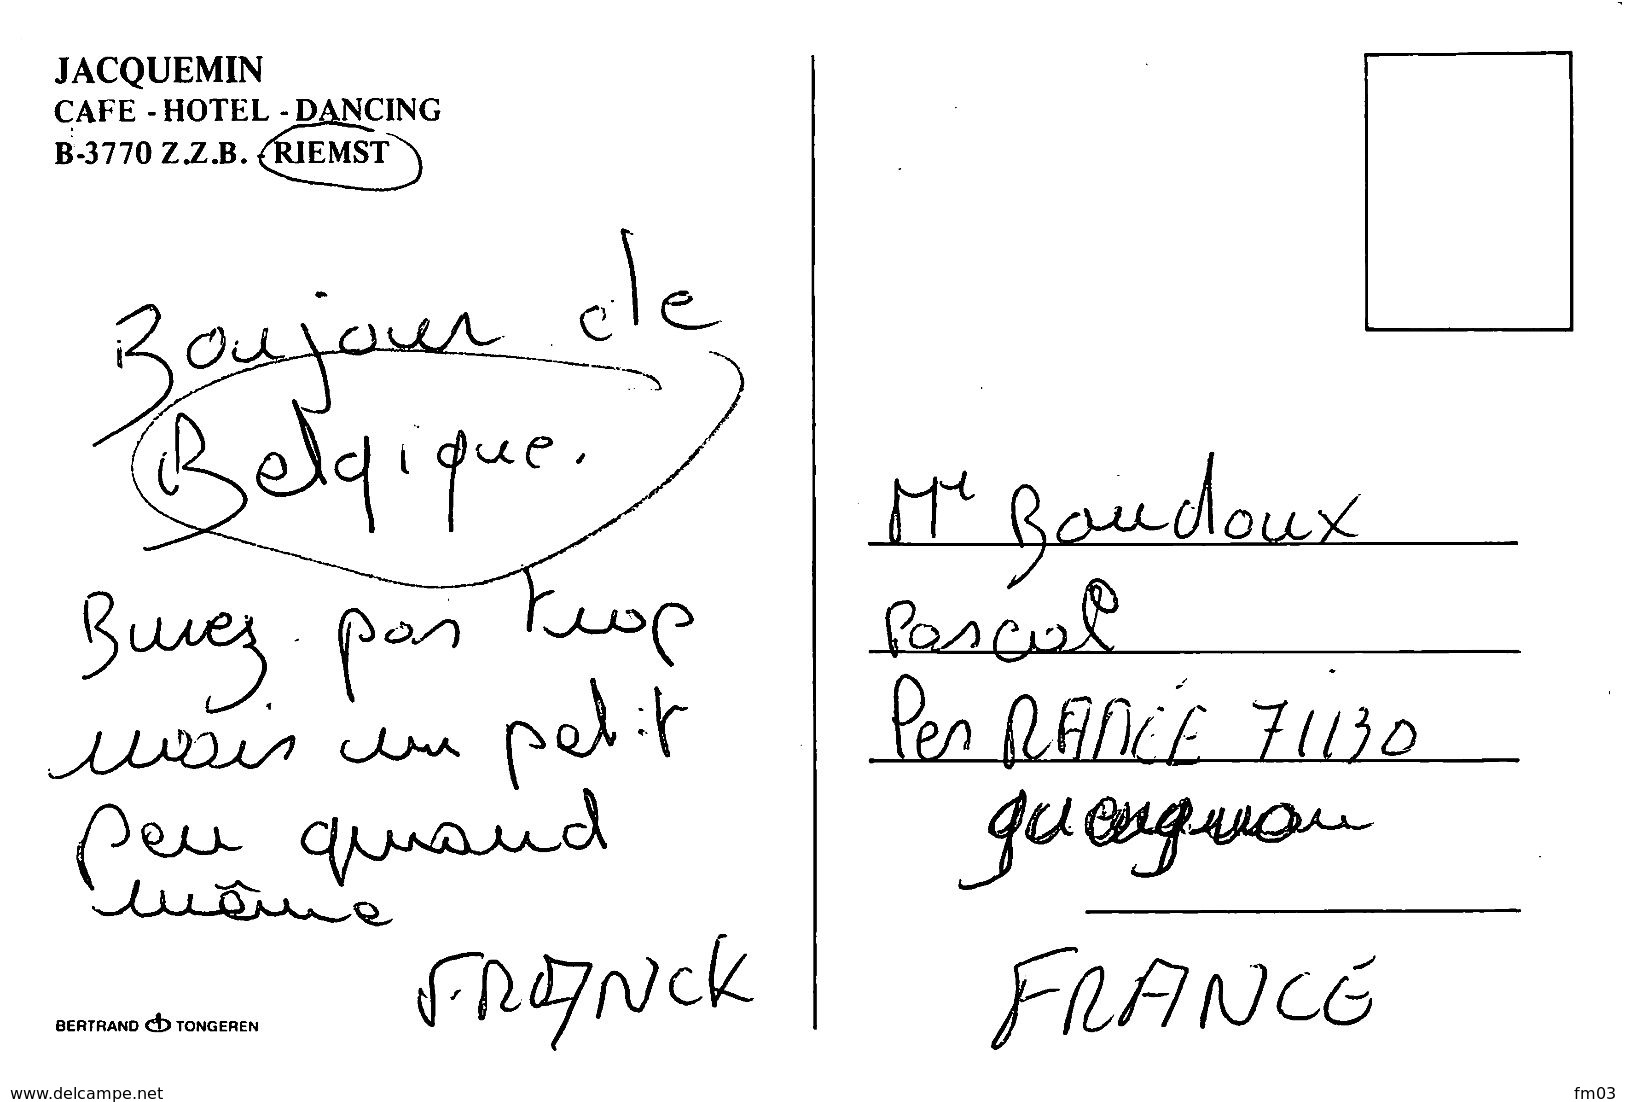 JACQUEMIN
CAFE - HOTEL - DANCING
B-3770 Z.Z.B. - RIEMST
Bonjour de
Belgique.
Buvez pas trop
mais un petit
peu quand
même
FRANCK
BERTRAND TONGEREN
Mr Baudoux
Pascal
71130
gueugnon
FRANCE
www.delcampe.net
fm03